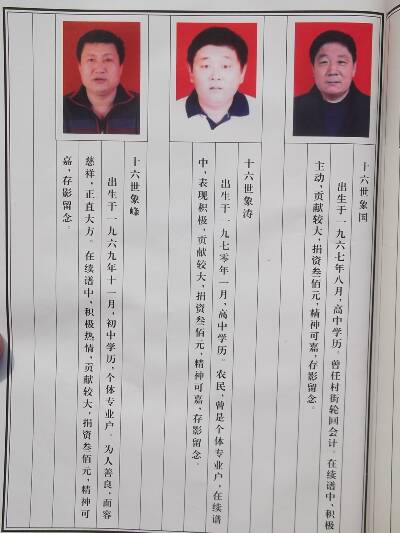 十六世象国
出生于一九六七年八月，高中学历。曾任村街轮回会计。在续谱中，积极
主动，贡献较大，捐资叁佰元，精神可嘉，存影留念。
十六世象涛
出生于一九七零年一月，高中学历。农民，曾是个体专业户，在续谱
中，表现积极，贡献较大，捐资叁佰元，精神可嘉，存影留念。
十六世象峰
出生于一九六九年十一月，初中学历，个体专业户。为人善良，面容
慈祥，正直大方。在续谱中，积极热情，贡献较大，捐资叁佰元，精神可
嘉，存影留念。